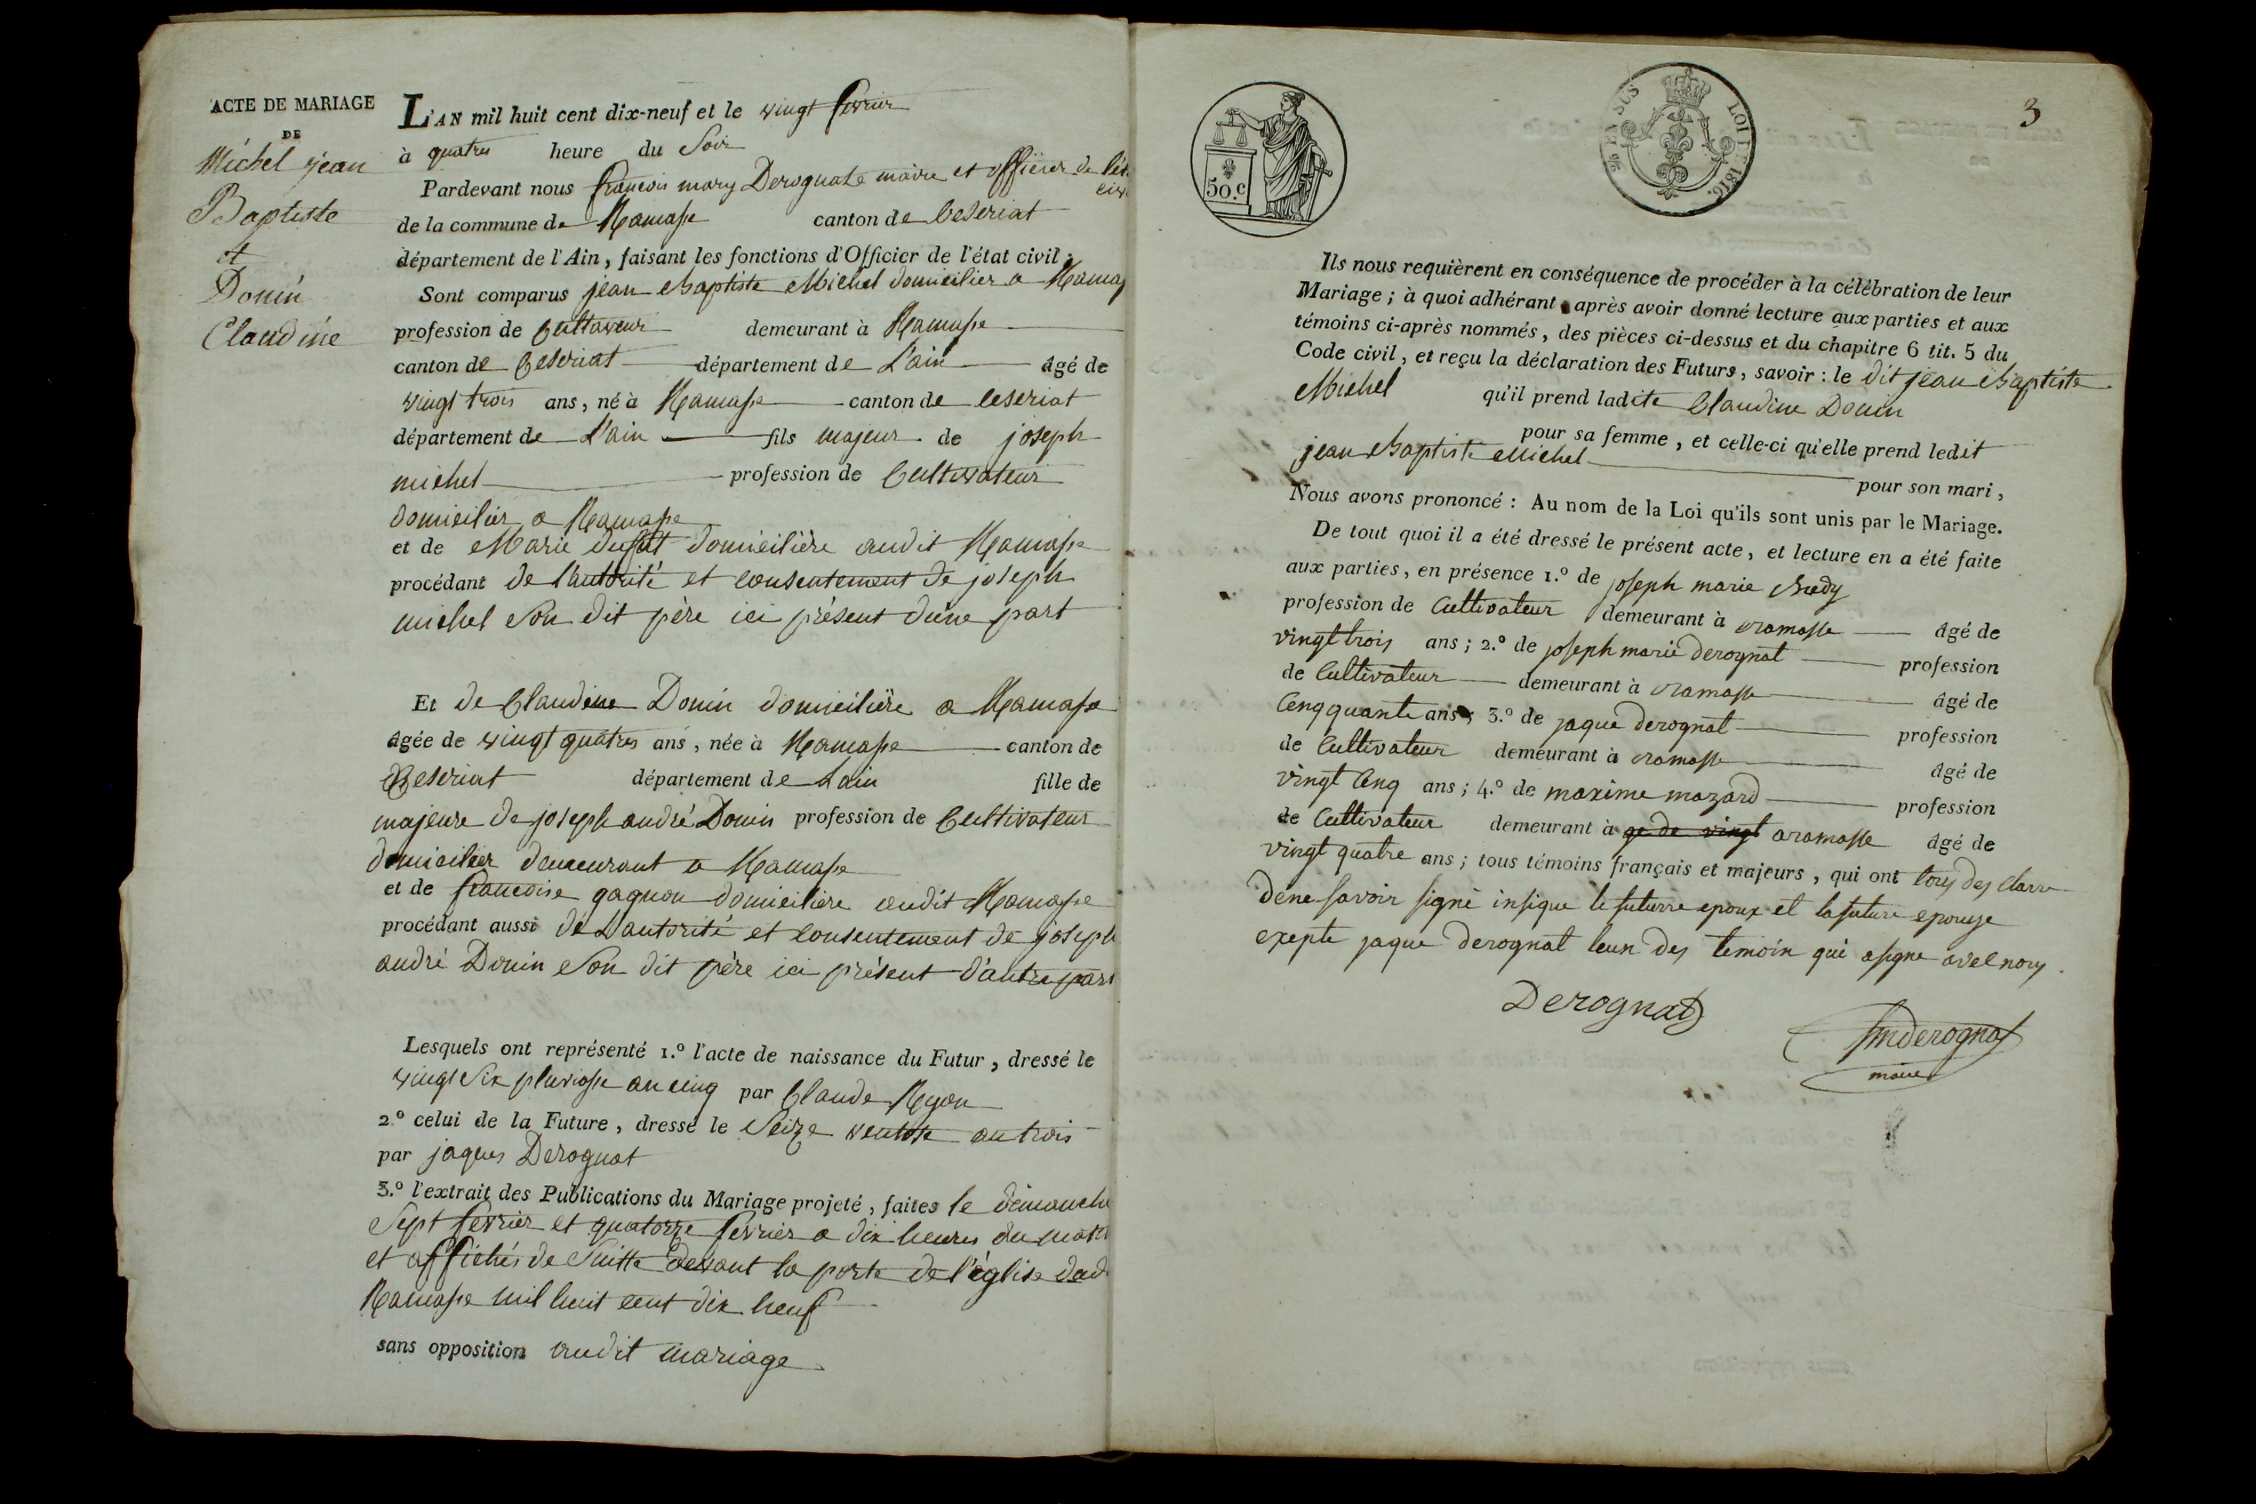 ACTE DE MARIAGE
DE
Michel jean
Baptiste
et
Donin
Claudine
L'AN mil huit cent dix-neuf et le vingt fevrier
à quatres heure du Soir
Pardevant nous francois mary Derognat maire et officier de l'ét
civ
de la commune de Ramasse canton de Ceseriat
département de l'Ain, faisant les fonctions d'Officier de l'état civil;
Sont comparus jean Baptiste Michel domicilier a Ramas
profession de Cultaveur demeurant à Ramasse
canton de Ceseriat département de L'ain âgé de
vingt trois ans, né à Ramasse canton de ceseriat
département de L'ain fils majeur de joseph
michel profession de Cultivateur
domicilier a Ramasse
et de Marie dufut domicilière audit Ramasse
procédant de l'autorité et consentement de joseph
michel Son dit père ici présent d'une part
Et de Claudine Donin domicilière a Ramasse
âgée de vingt quatres ans, née à Ramasse canton de
Ceseriat département de Lain fille de
majeure de joseph andré Donin profession de Cultivateur
domicilier demeurant a Ramasse
et de francoise gagnon domiciliere audit Ramasse
procédant aussi de L'autorité et consentement de joseph
andré Donin Son dit père ici présent d'autre part
Lesquels ont représenté 1.º l'acte de naissance du Futur, dressé le
vingt Six pluviose an cinq par Claude Ryon
2.º celui de la Future, dressé le Seize ventose an trois
par jaques Derognat
3.º l'extrait des Publications du Mariage projeté, faites le dimanche
Sept fevrier et quatorze fevrier a dix heures du matin
et affichés de Suitte devant la porte de l'église dud
Ramasse mil huit cent dix neuf
sans opposition audit mariage
3
50.c
EN SUS LOI DE 1816.
Ils nous requièrent en conséquence de procéder à la célébration de leur
Mariage; à quoi adhérant après avoir donné lecture aux parties et aux
témoins ci-après nommés, des pièces ci-dessus et du chapitre 6 tit. 5 du
Code civil, et reçu la déclaration des Futurs, savoir: le dit jean Baptiste
Michel qu'il prend ladite Claudine Donin
pour sa femme, et celle-ci qu'elle prend ledit
jean Baptiste Michel pour son mari,
Nous avons prononcé: Au nom de la Loi qu'ils sont unis par le Mariage.
De tout quoi il a été dressé le présent acte, et lecture en a été faite
aux parties, en présence 1.º de joseph marie Budy
profession de Cultivateur demeurant à aramasse âgé de
vingt trois ans; 2.º de joseph marie derognat profession
de Cultivateur demeurant à aramasse âgé de
Cenqquante ans; 3.º de jaque derognat profession
de Cultivateur demeurant à aramasse âgé de
vingt Cenq ans; 4.º de maxime mazard profession
de Cultivateur demeurant à ge de vingt aramasse âgé de
vingt quatre ans; tous témoins français et majeurs, qui ont tous des clarre
dene savoir signé insique le futurre epoux et la future epouse
exepte jaque derognat leun des temoin qui a signe avel nous.
Derognat
fmderognat
maire